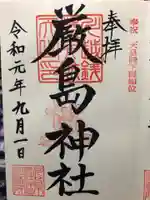 奉祝 天皇陛下御即位
奉拝
厳島神社
令和元年九月一日